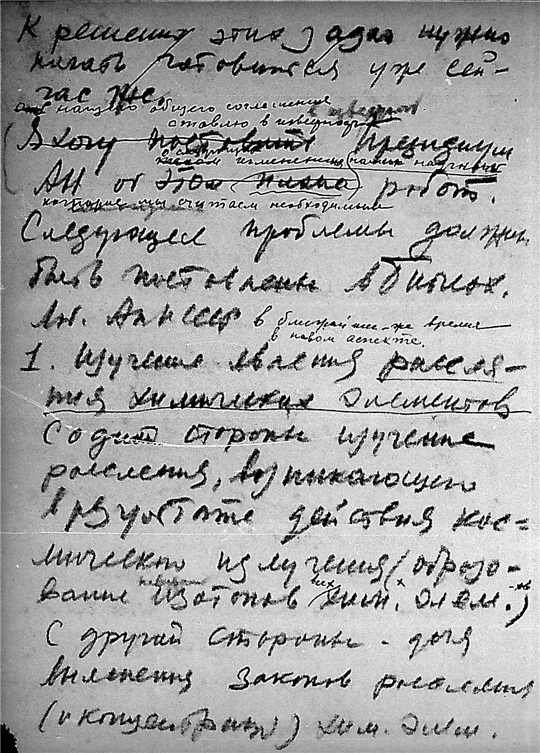 К решению этих задач нужно
начать готовиться уже сей-
час же.
нашего общего соглашения
ставлю в известность
Вхожу поставить Президиум
изменении наших научных
АН об этом работ.
которые мы считаем необходимыми
Следующие проблемы должны
быть поставлены в Биогеох.
Лаб. АН СССР в ближайшее же время
в новом аспекте.
1. Изучение явления рассея-
ния химических элементов
С одной стороны изучение
рассеяния, возникающего
в результате действия кос-
мического излучения (образо-
вание изотопов хим. элем.)
С другой стороны - для
выяснения законов рассеяния
(и концентрации) хим. элем.